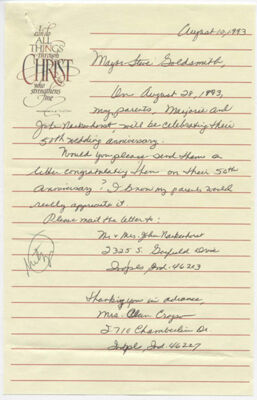 I can do
ALL
THINGS
through
CHRIST
who
strengthens
me
August 10, 1993
Mayor Steve Goldsmith,
On August 28, 1993,
my parents, Marjorie and
John Nackenhorst, will be celebrating their
50th wedding anniversary.
Would you please send them a
letter congratulating them on their 50th
Anniversary? I know my parents would
really appreciate it.
Please mail the letter to:
Mr. & Mrs. John Nackenhorst
2325 S. Garfield Drive
Indpls, Ind. 46203
Thanking you in advance,
Mrs. Alan
5710 Chamberlin Dr.
Indpls, Ind. 46227